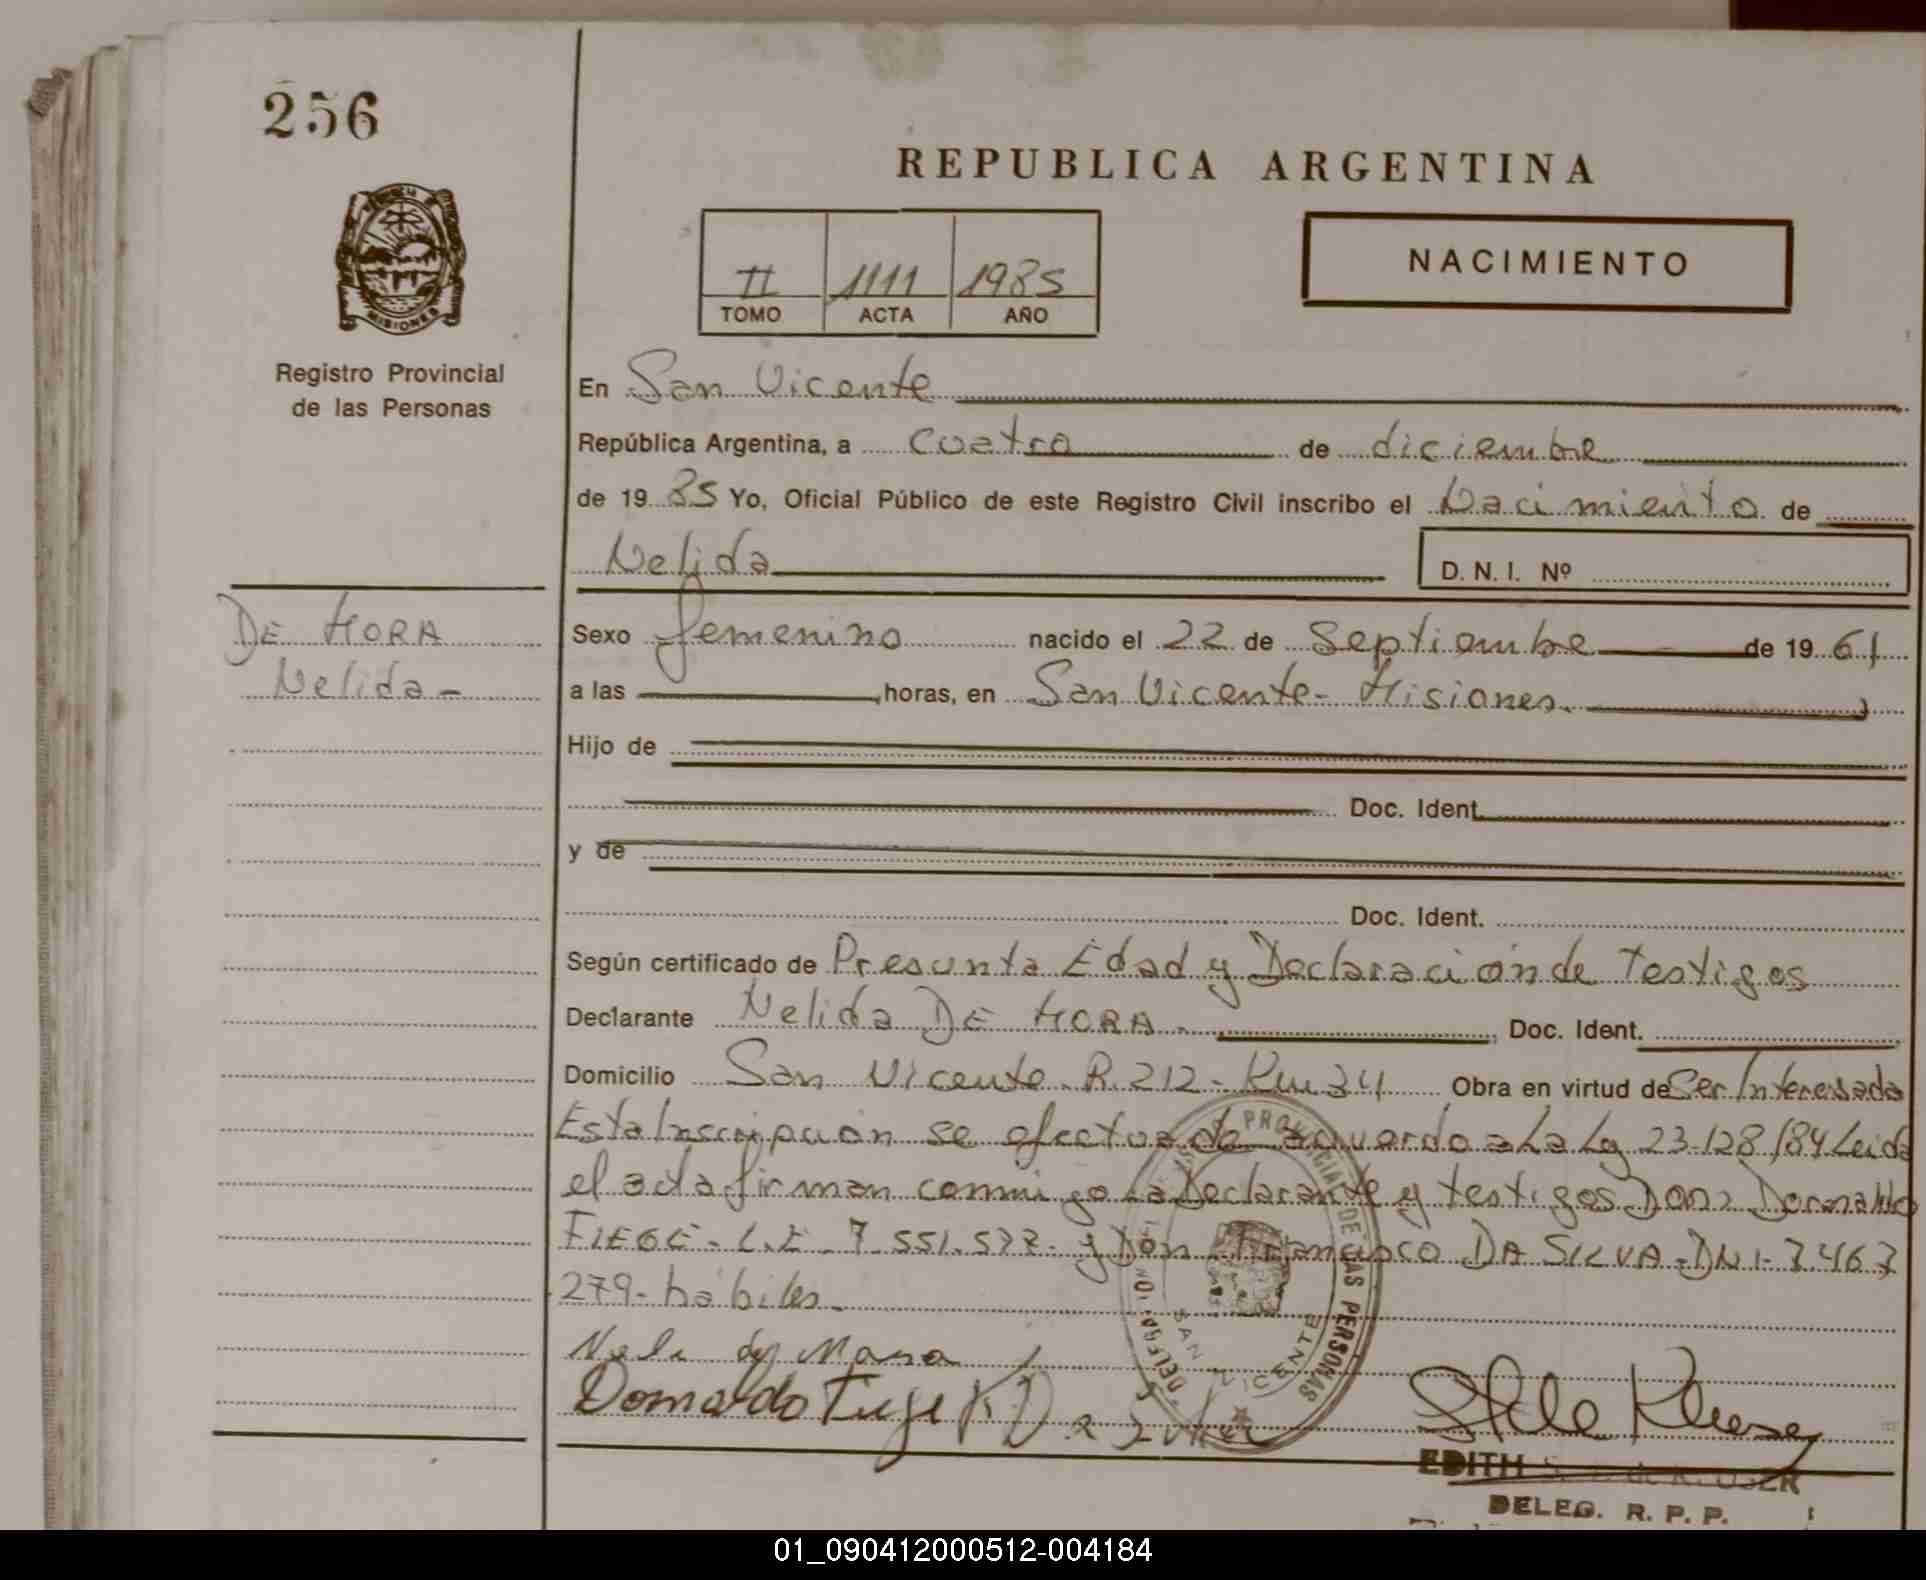 256
REPUBLICA ARGENTINA
NACIMIENTO
II 1111 1985
TOMO ACTA AÑO
MISIONES
Registro Provincial
de las Personas
En San Vicente
República Argentina, a cuatro de diciembre
de 19 85 Yo, Oficial Público de este Registro Civil inscribo el Nacimiento de
Nelida D. N. I. Nº
DE MORA
Nelida-
Sexo femenino nacido el 22 de Septiembre de 19 61
a las , horas, en San Vicente- Misiones.
Hijo de
Doc. Ident.
y de
Doc. Ident.
Según certificado de Presunta Edad y Declaración de Testigos
Declarante Nelida DE MORA. , Doc. Ident.
Domicilio San Vicente R. 212 - Km 34 Obra en virtud de Ser Interesada
Esta Inscripción se efectua de acuerdo a La Ley 23.128/84 Leida
el acta firman conmigo La Declarante y testigos Don: Dornaldo
FIEGE - L.E - 7.551.577. y Don Francisco DA SILVA - DNI- 7.467
279- hábiles.
PROVINCIAL DE LAS PERSONAS
SAN VICENTE
EDITH
DELEG. R. P. P.
01_090412000512-004184